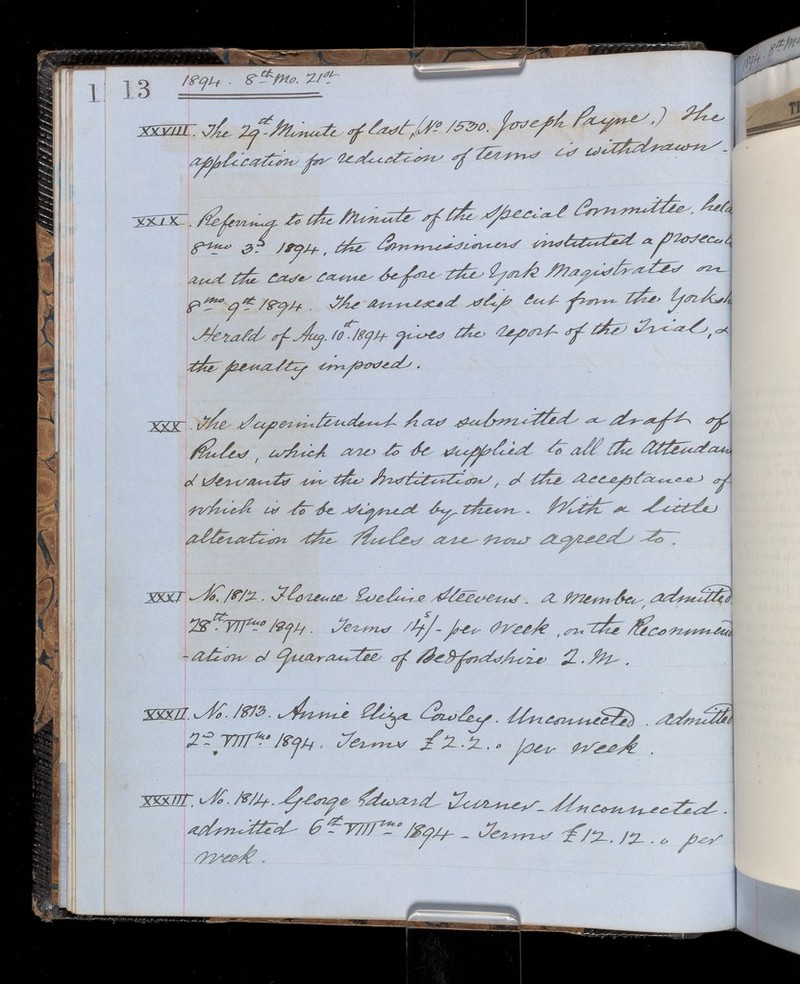 13 1894. 8th Mo. 21st
XXVIII. The 29th Minute of last, (No 1530. Joseph Payne.) The
application for reduction of terms is withdrawn.
XXIX. Referring to the Minute of the Special Committee, held
8mo 3d 1894, the Commissioners instituted a prosecu
and the case came before the York Magistrates on
8mo 9th 1894. The annexed slip cut from the Yorksh
Herald of Aug. 10th 1894 gives the report of the Trial, &
the penalty imposed.
XXX. The Superintendent has submitted a draft of
Rules, which are to be supplied to all the Attendan
& servants in the Institution, & the acceptance of
which is to be signed by them. With a little
alteration the Rules are now agreed to.
XXXI No. 1812. Florence Eveline Steevens. a member, admitted
28th VIImo 1894. Terms 14s/- per week, on the Recommend
-ation & Guarantee of Bedfordshire 2. M.
XXXII. No. 1813. Annie Eliza Cowley. Unconnected. admitted
2d VIIImo 1894. Terms £2.2.0 per week.
XXXIII. No. 1814. George Edward Turner - Unconnected.
admitted 6th VIIImo 1894 - Terms £12.12.0 per
week.